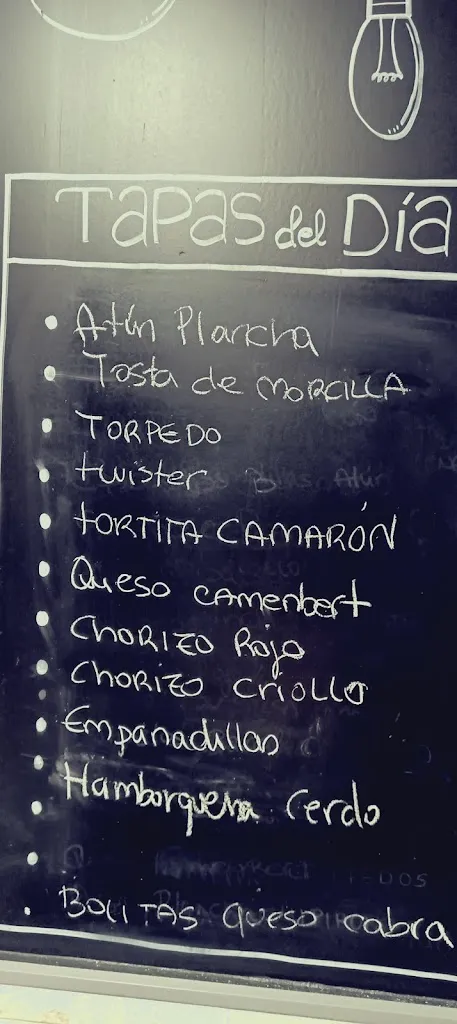 TAPAS del Día
• Atún Plancha
• Tosta de MORCILLA
• TORPEDO
• twister
• tORTITA CAMARÓN
• Queso CAMENbert
• CHORIZO Rojo
• CHORIZO CriOLLO
• Empanadillas
• Hamborquera Cerdo
• BOLITAS Queso cabra